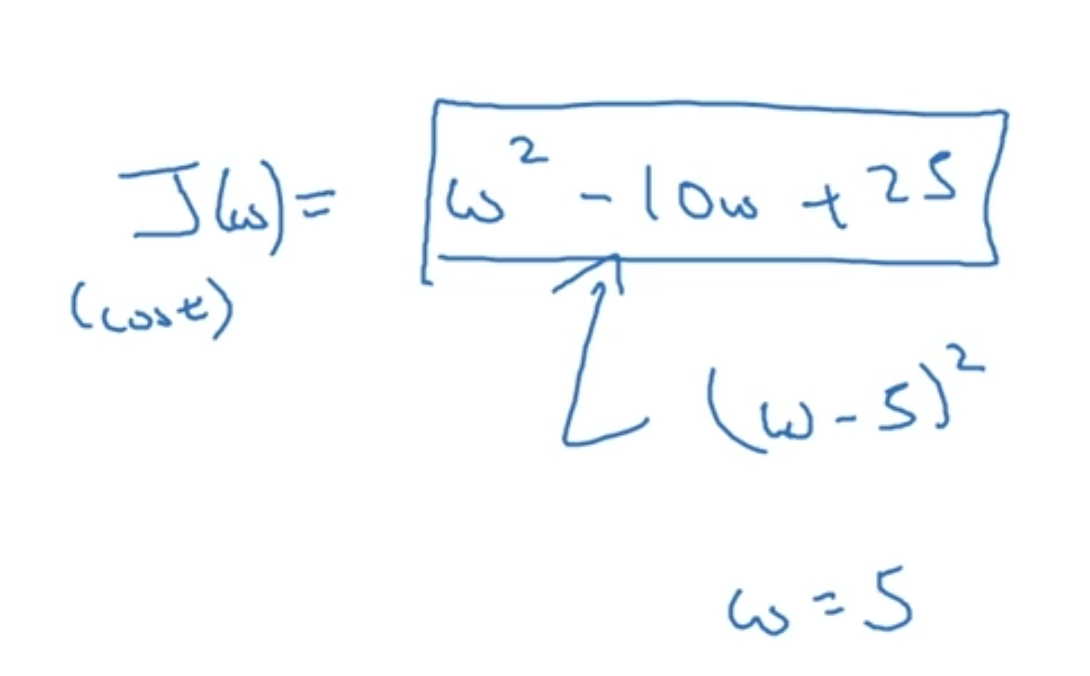 J(w) = w² - 10w + 25
(cost)
(w - 5)²
w = 5